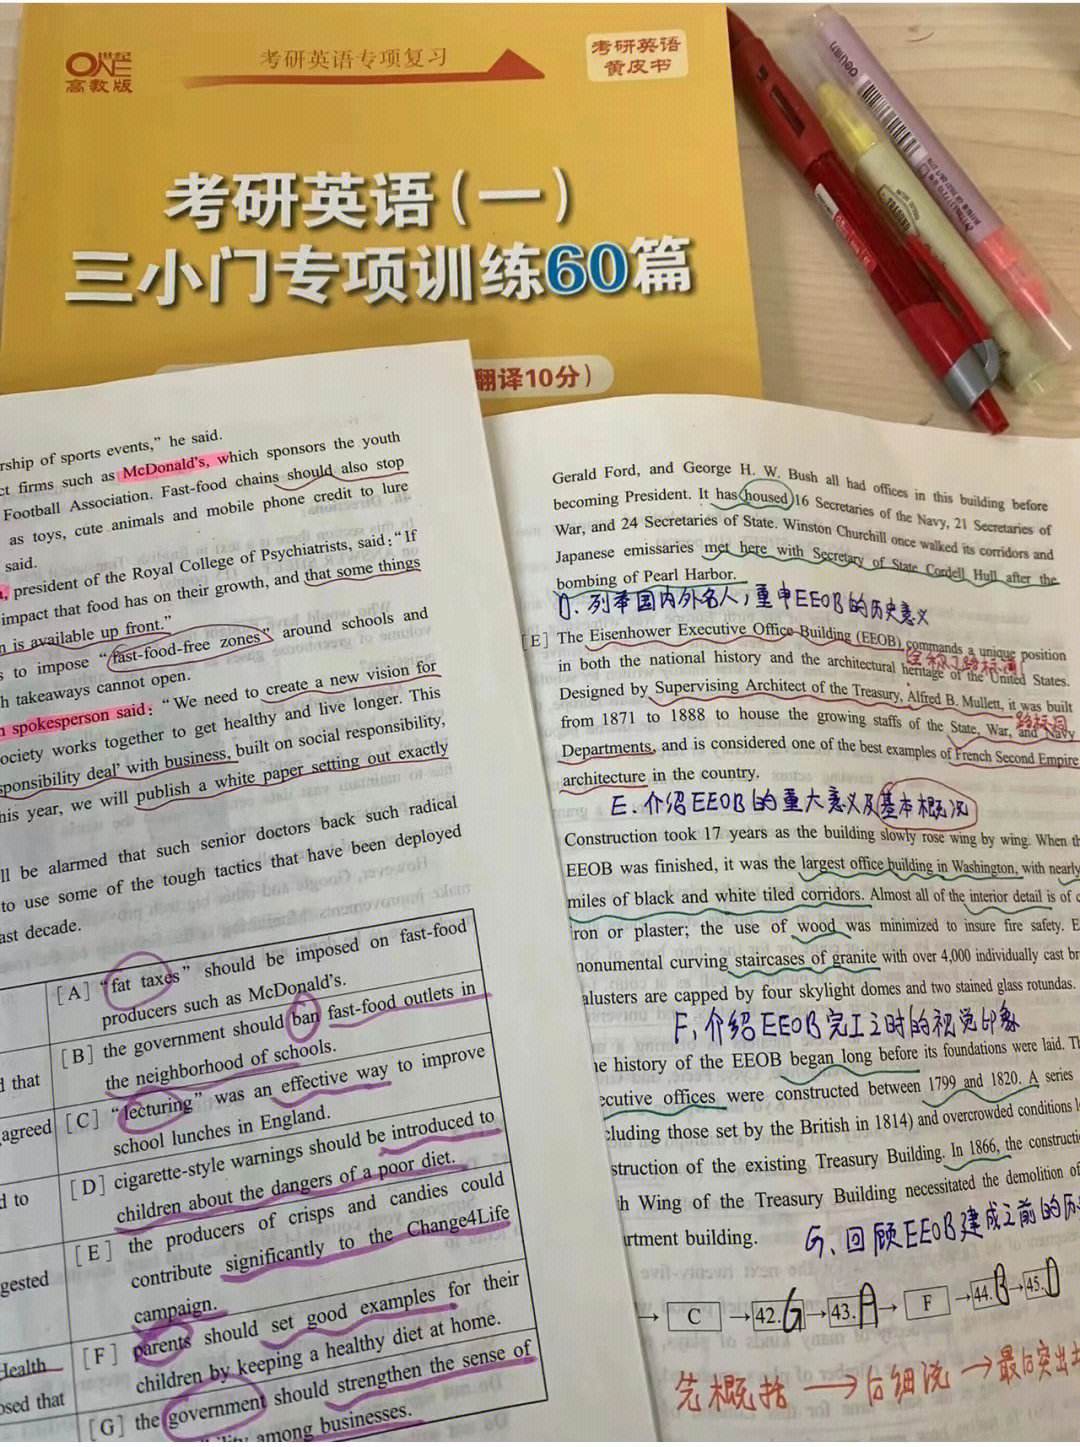 世纪
ONE
高教版
考研英语专项复习
考研英语
黄皮书
考研英语(一)
三小门专项训练60篇
翻译10分)
rship of sports events,” he said.
ct firms such as McDonald’s, which sponsors the youth
Football Association. Fast-food chains should also stop
as toys, cute animals and mobile phone credit to lure
said.
president of the Royal College of Psychiatrists, said: “If
impact that food has on their growth, and that some things
n is available up front.”
s to impose “fast-food-free zones” around schools and
h takeaways cannot open.
n spokesperson said: “We need to create a new vision for
ociety works together to get healthy and live longer. This
sponsibility deal’ with business, built on social responsibility,
his year, we will publish a white paper setting out exactly
ll be alarmed that such senior doctors back such radical
to use some of the tough tactics that have been deployed
ast decade.
[A] “fat taxes” should be imposed on fast-food
producers such as McDonald’s.
d that
[B] the government should ban fast-food outlets in
the neighborhood of schools.
agreed
[C] “lecturing” was an effective way to improve
school lunches in England.
d to
[D] cigarette-style warnings should be introduced to
children about the dangers of a poor diet.
gested
[E] the producers of crisps and candies could
contribute significantly to the Change4Life
campaign.
Health
[F] parents should set good examples for their
children by keeping a healthy diet at home.
osed that
[G] the government should strengthen the sense of
among businesses.
Gerald Ford, and George H. W. Bush all had offices in this building before
becoming President. It has housed 16 Secretaries of the Navy, 21 Secretaries of
War, and 24 Secretaries of State. Winston Churchill once walked its corridors and
Japanese emissaries met here with Secretary of State Cordell Hull after the
bombing of Pearl Harbor.
D. 列举国内外名人，重申EEOB的历史意义
[E] The Eisenhower Executive Office Building (EEOB) commands a unique position
全称了路标词
in both the national history and the architectural heritage of the United States.
Designed by Supervising Architect of the Treasury, Alfred B. Mullett, it was built
路标词
from 1871 to 1888 to house the growing staffs of the State, War, and Navy
Departments, and is considered one of the best examples of French Second Empire
architecture in the country.
E、介绍EEOB的重大意义及基本概况
Construction took 17 years as the building slowly rose wing by wing. When th
EEOB was finished, it was the largest office building in Washington, with nearly
miles of black and white tiled corridors. Almost all of the interior detail is of c
iron or plaster; the use of wood was minimized to insure fire safety. E
monumental curving staircases of granite with over 4,000 individually cast br
alusters are capped by four skylight domes and two stained glass rotundas.
F、介绍EEOB完工之时的视觉印象
he history of the EEOB began long before its foundations were laid. Th
ecutive offices were constructed between 1799 and 1820. A series
cluding those set by the British in 1814) and overcrowded conditions l
struction of the existing Treasury Building. In 1866, the constructi
h Wing of the Treasury Building necessitated the demolition of
rtment building.
G、回顾EEOB建成之前的历
→ C → 42. G → 43. A → F → 44. B → 45. D
先概括 → 后细说 → 最后突出